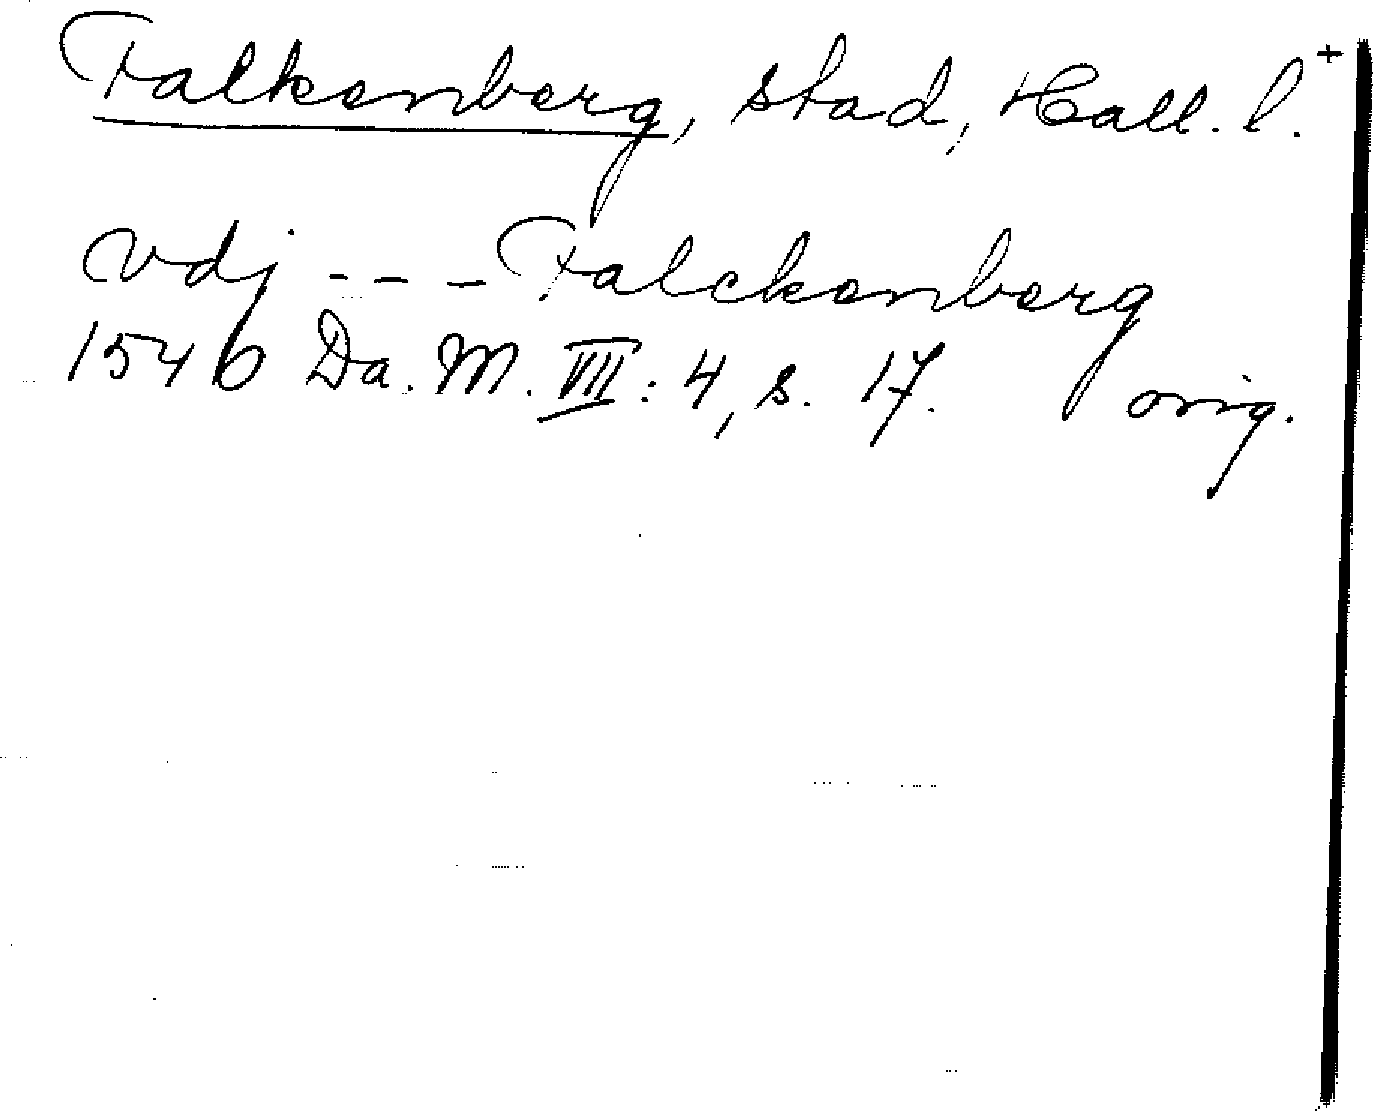 Falkenberg, stad, Hall. l. +
vdj - - - Falckenberg
1546 Da. M. VIII: 4, s. 17. orig.